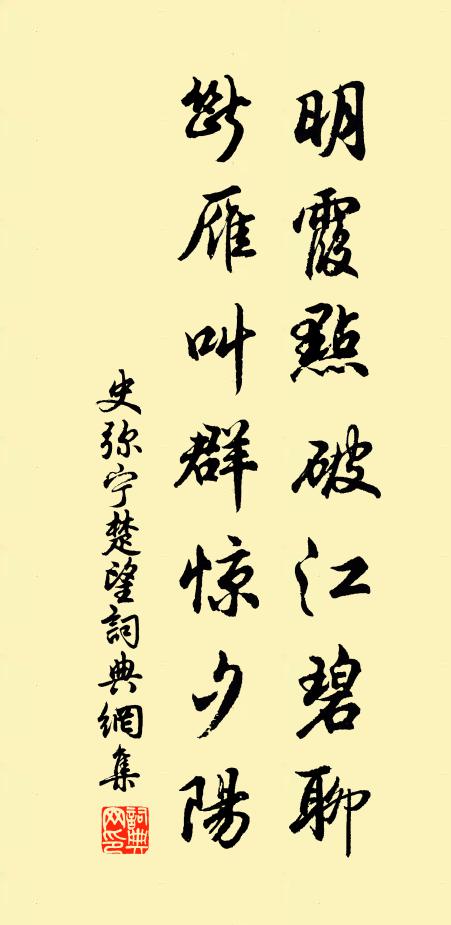 明霞點破江碧聊
斷雁叫群惊夕陽
史弥宁楚望詞典網集
詞典网印